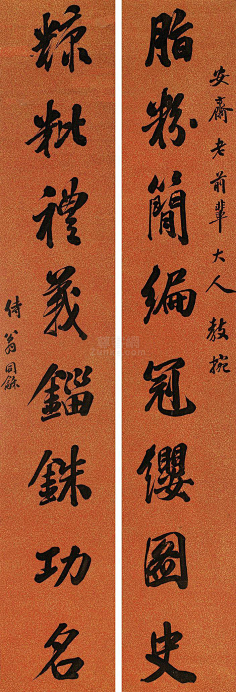 安齋老前輩大人教捥
脂粉簡編冠纓圖史
糠粃禮義錙銖功名
侍翁同龢